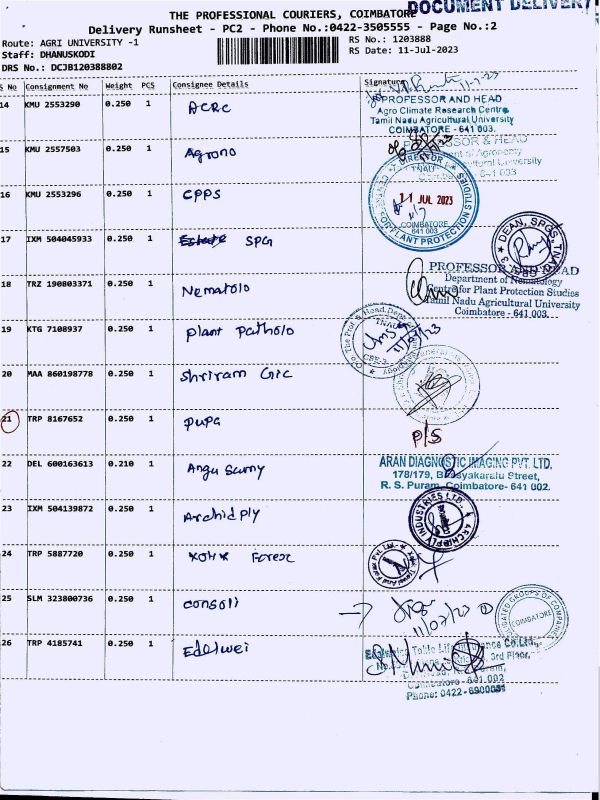 DOCUMENT DELIVERY
THE PROFESSIONAL COURIERS, COIMBATORE
Delivery Runsheet - PC2 - Phone No.:0422-3505555 - Page No.:2
Route: AGRI UNIVERSITY -1
RS No.: 1203888
Staff: DHANUSKODI
RS Date: 11-Jul-2023
DRS No.: DCJB120388802
S No Consignment No Weight PCS Consignee Details Signature
14 KMU 2553290 0.250 1 ACRC
PROFESSOR AND HEAD
Agro Climate Research Centre
Tamil Nadu Agricultural University
COIMBATORE - 641 003.
15 KMU 2557503 0.250 1 Agrono
PROFESSOR & HEAD
16 KMU 2553296 0.250 1 CPPS
DIRECTOR
TNAU
11 JUL 2023
COIMBATORE
641 003
OF PLANT PROTECTION STUDIES
17 IXM 504045933 0.250 1 SPG
DEAN, SPGS, TNAU
18 TRZ 190803371 0.250 1 Nematolo
PROFESSOR AND HEAD
Department of Nematology
Centre for Plant Protection Studies
Tamil Nadu Agricultural University
Coimbatore - 641 003.
19 KTG 7108937 0.250 1 Plant Patholo
TNAU
11/07/23
20 MAA 860198778 0.250 1 Shriram Gic
21 TRP 8167652 0.250 1 pupa
P/S
22 DEL 600163613 0.210 1
ARAN DIAGNOSTIC IMAGING PVT. LTD.
178/179, Street,
R. S. Puram, Coimbatore- 641 002.
23 IXM 504139872 0.250 1 Archidply
ARCHIDPLY INDUSTRIES LTD.
24 TRP 5887720 0.250 1 Forex
25 SLM 323800736 0.250 1 consoli
11/07/23
GROUPS OF COMPANIES
COIMBATORE
26 TRP 4185741 0.250 1 Edelwei
Tokio Life Insurance Co.Ltd.,
3rd Floor,
Coimbatore - 641 002
Phone: 0422-